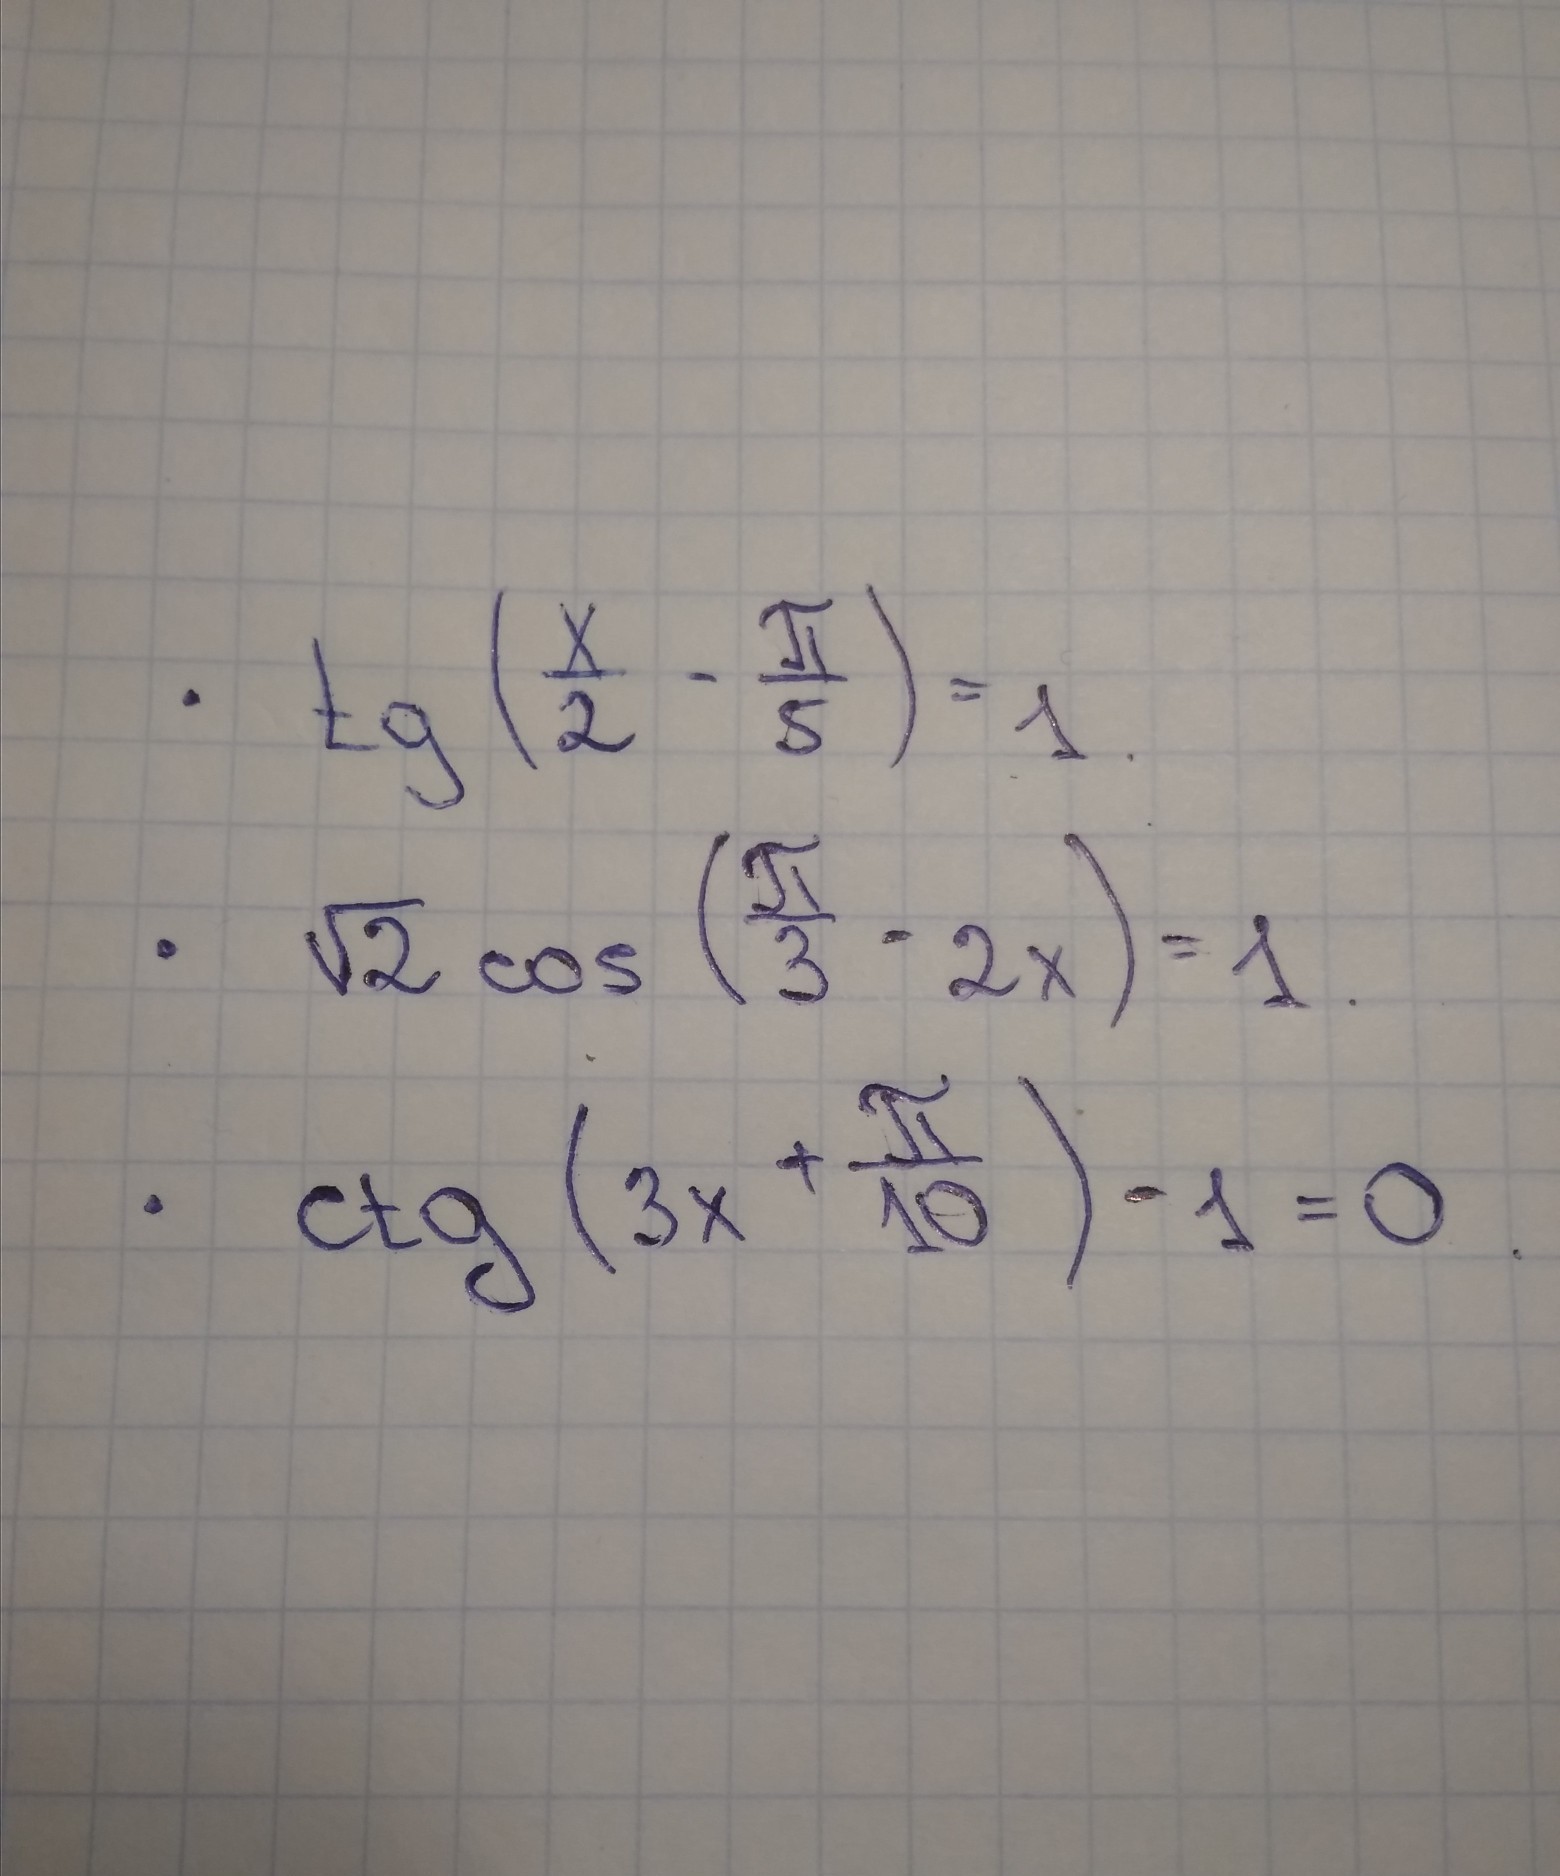 · tg (x/2 - π/5) = 1.
· √2 cos (π/3 - 2x) = 1.
· ctg (3x + π/10) - 1 = 0.